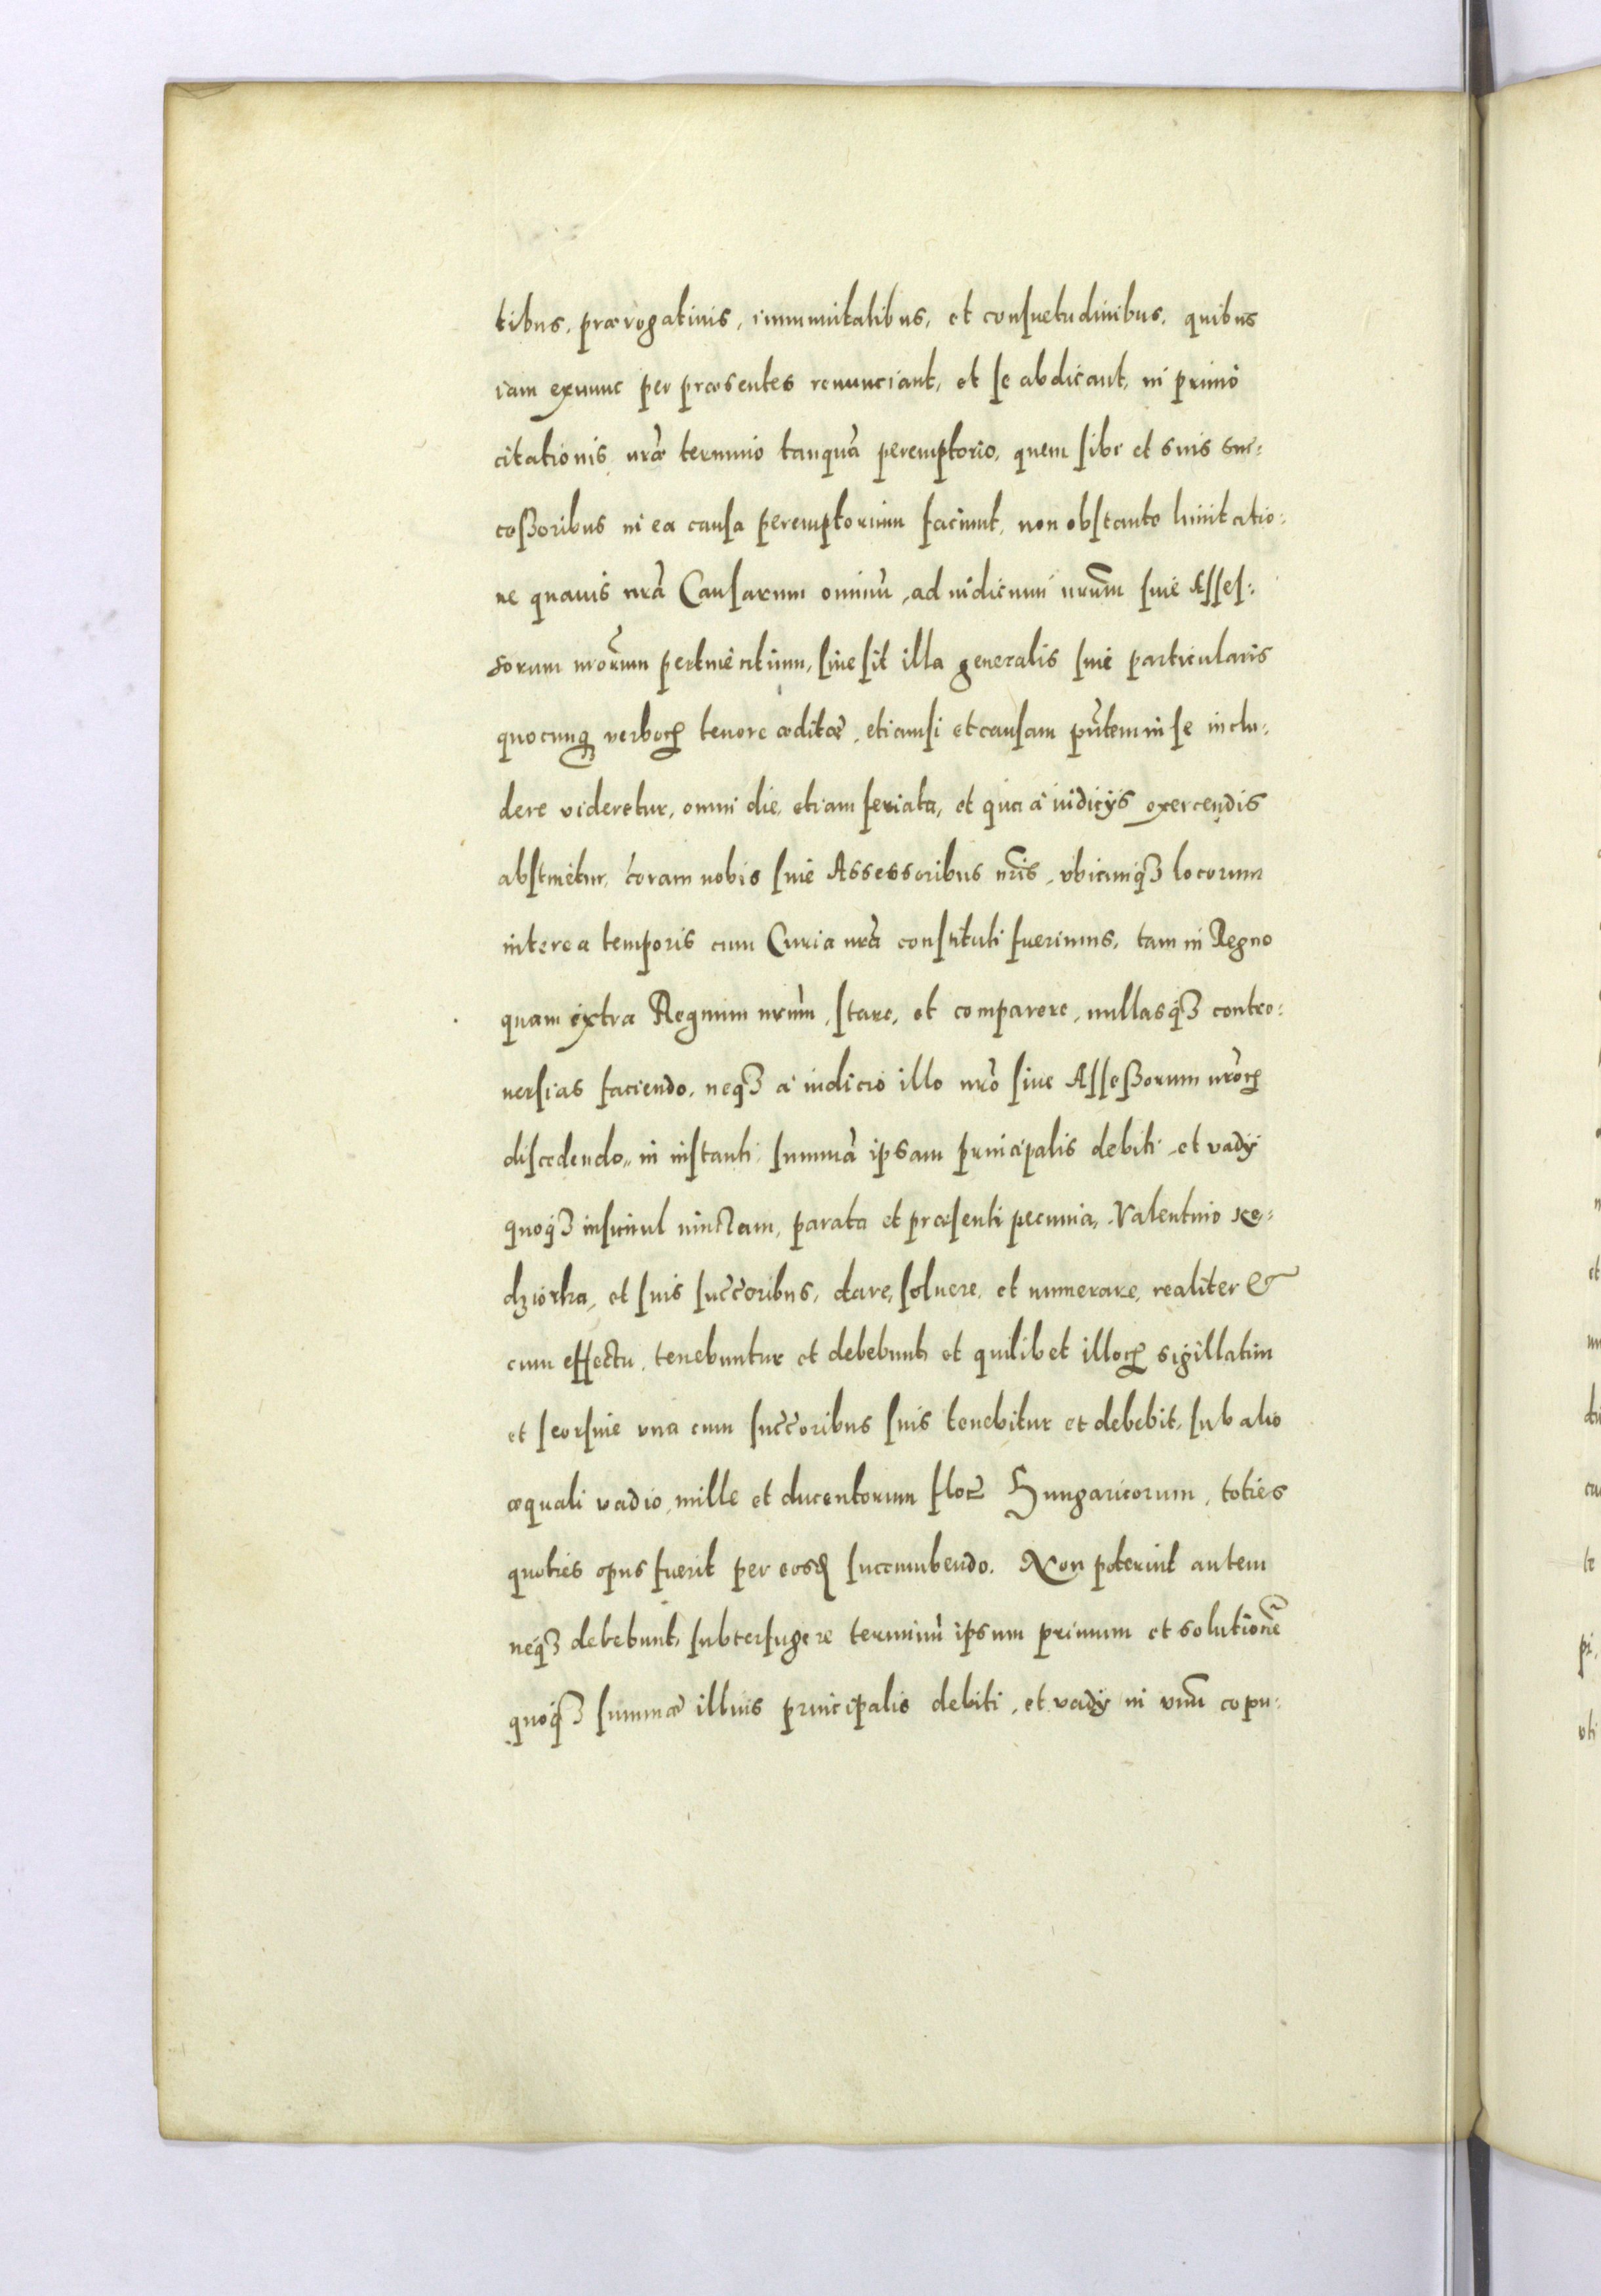 tibus, prærogatiuis, immunitatibus, et consuetudinibus, quibus
iam exnunc per præsentes renunciant, et se abdicant, in primo
citationis nr̃æ termino tanquã peremptorio, quem sibi et suis suc:
ceßoribus in ea causa peremptorium faciunt, non obstante limitatio:
ne quauis nr̃a Causarum omniũ, ad iudicium nr̃um siue Asses:
sorum nr̃orum pertinentium, siue sit illa generalis siue particularis
quocunqȝ verborꝝ tenore æditæ, etiamsi et causam pñtem in se inclu:
dere videretur, omni die, etiam feriata, et qua à iudicijs exercendis
abstinetur, coram nobis siue Assessoribus nr̃is, vbicunqȝ locorum
interea temporis cum Curia nr̃a constituti fuerimus, tam in Regno
quam extra Regnum nr̃um, stare, et comparere, nullasqȝ contro:
uersias faciendo, neqȝ à iudicio illo nr̃o siue Asseßorum nr̃orꝝ
discedendo, in instanti, summã ipsam principalis debiti, et vadij
quoqȝ insimul iunctam, parata et præsenti pecunia, Valentino Ke:
dziorka, et suis succ̃oribus, dare, soluere, et numerare, realiter &
cum effectu, tenebuntur et debebunt, et quilibet illorꝝ sigillatim
et seorsiue vna cum succ̃oribus suis tenebitur et debebit, sub alio
æquali vadio, mille et ducentorum flor̃ Hungaricorum, toties
quoties opus fuerit per eosd̃ succumbendo. Non poterint autem
neqȝ debebunt, subterfugere terminũ ipsum primum et solutionẽ
quoqȝ summæ illius principalis debiti, et vadij in vnũ copu: